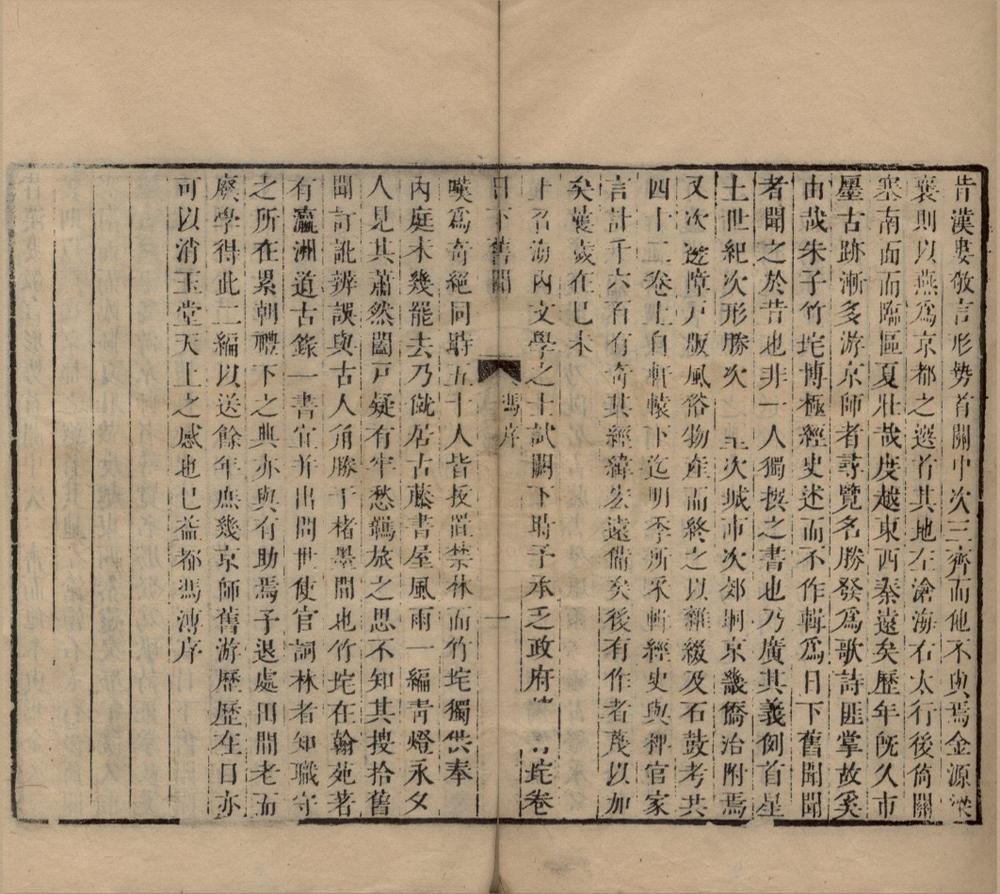 昔漢婁敬言形勢首關中次三齊而他不與焉金源梁
襄則以燕爲京都之選首其地左滄海右太行後倚關
塞南面而臨區夏壯哉度越東西秦遠矣歷年旣久市
墨古跡漸多游京師者尋覽名勝發爲歌詩匪掌故奚
由哉朱子竹垞博極經史述而不作輯爲日下舊聞聞
者聞之於昔也非一人獨撰之書也乃廣其義例首星
土世紀次形勝次宫室次城市次郊坰京畿僑治附焉
又次邊障戸版風俗物產而終之以雜綴及石鼓考共
四十二卷上自軒轅下迄明季所采輯經史與稗官家
言計千六百有奇其經緯宏遠備矣後有作者蔑以加
矣曩歲在巳未
上召海內文學之士試闕下時予承乏政府 垞卷
日下舊聞
馮序
一
嘆爲奇絕同時五十人皆拔置禁林而竹垞獨供奉
內庭未幾罷去乃僦居古藤書屋風雨一編靑燈永夕
人見其蕭然闔戸疑有牢愁羈旅之思不知其搜拾舊
聞訂訛辨誤與古人角勝于楮墨間也竹垞在翰苑著
有瀛洲道古錄一書宜并出問世使官詞林者知職守
之所在累朝禮下之典亦與有助焉予退處田間老而
廢學得此二編以送餘年庶幾京師舊游歷歷在目亦
可以消玉堂天上之感也巳益都馮溥序